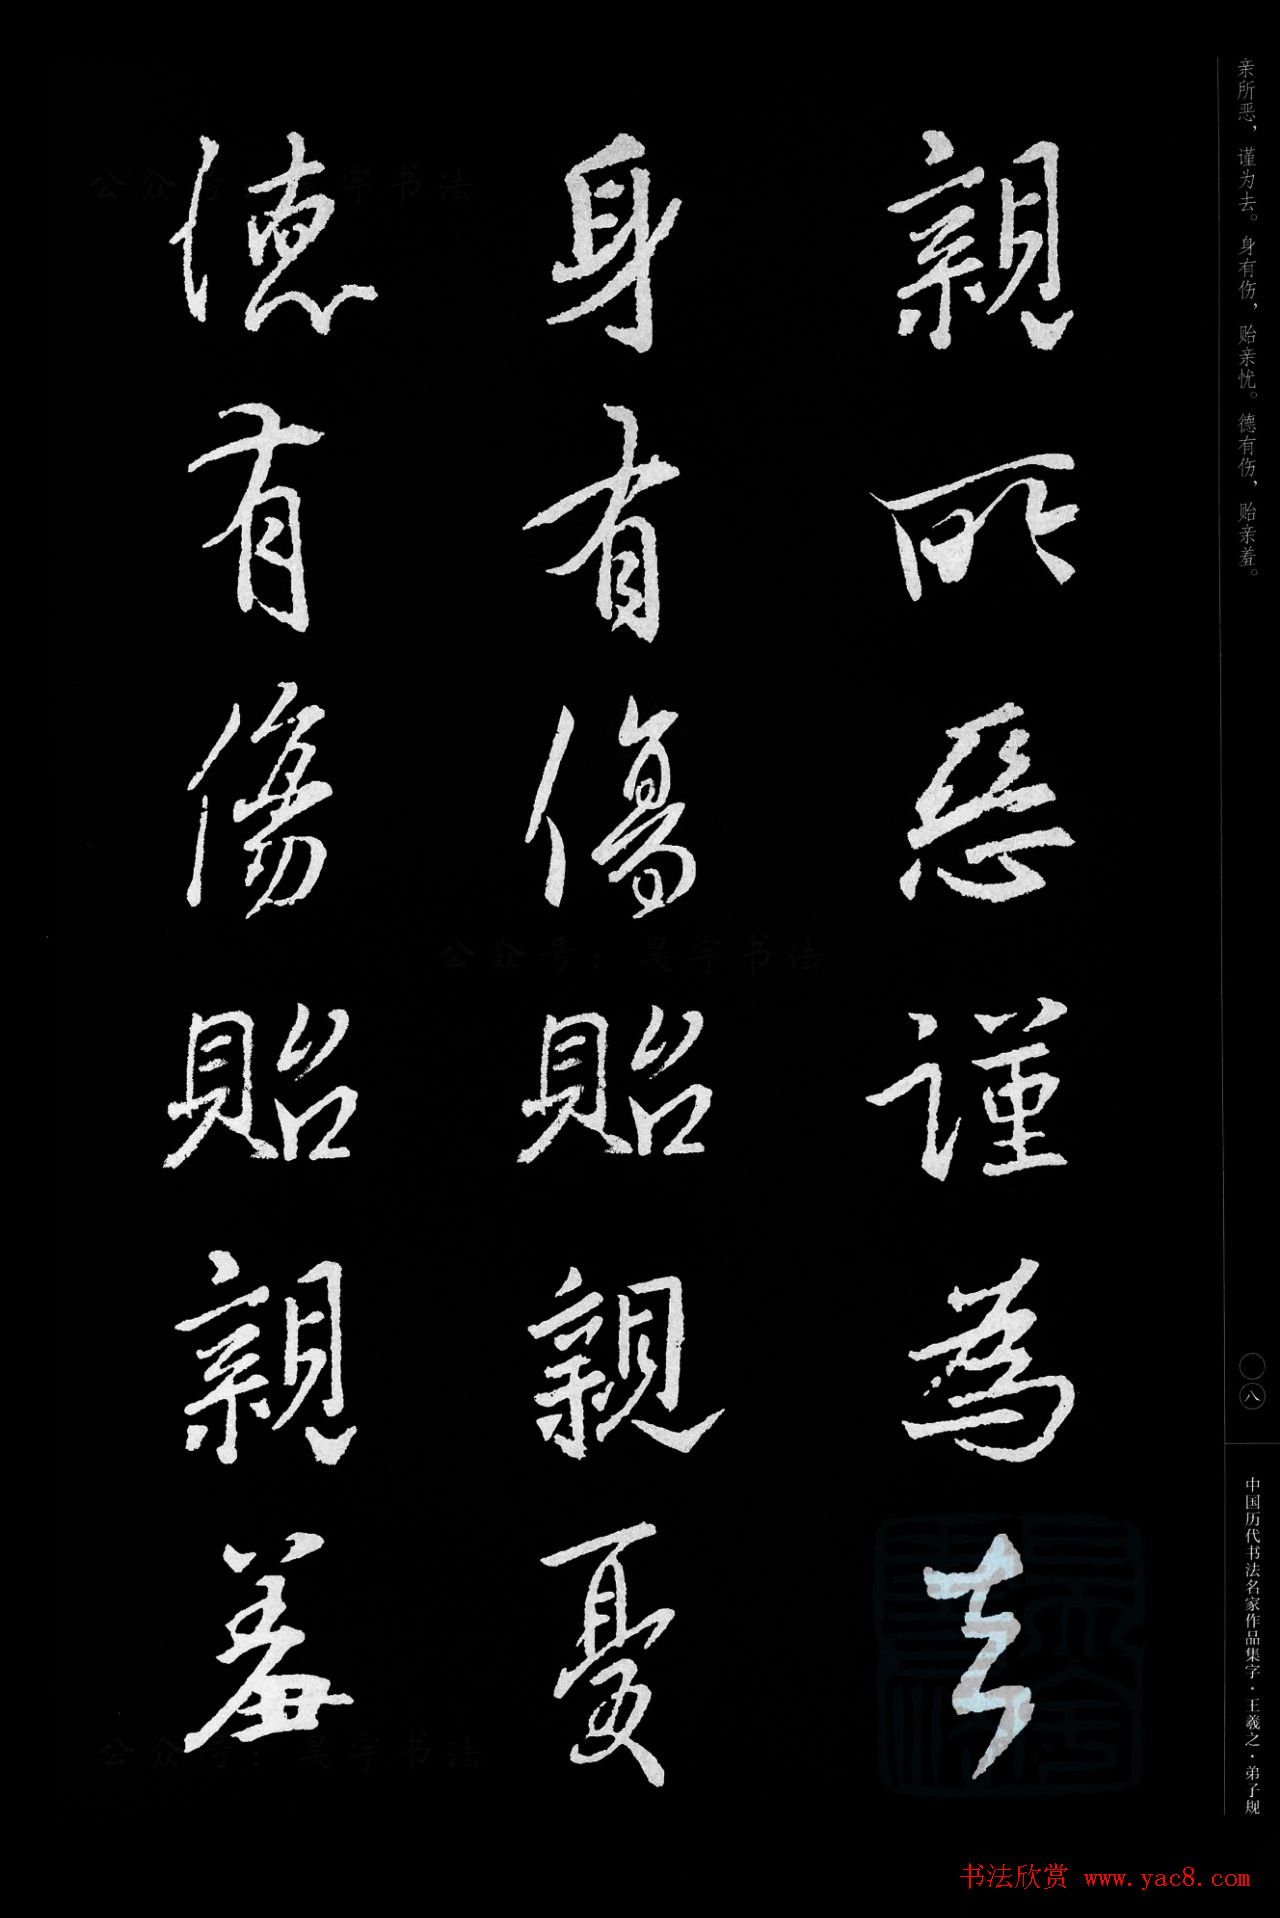 亲所恶，谨为去。身有伤，贻亲忧。德有伤，贻亲羞。
親所惡謹為去
身有傷貽親憂
德有傷貽親羞
〇八
中国历代书法名家作品集字·王羲之·弟子规
公众号：昊宇书法
公众号：昊宇书法
公众号：昊宇书法
书法欣赏 www.yac8.com